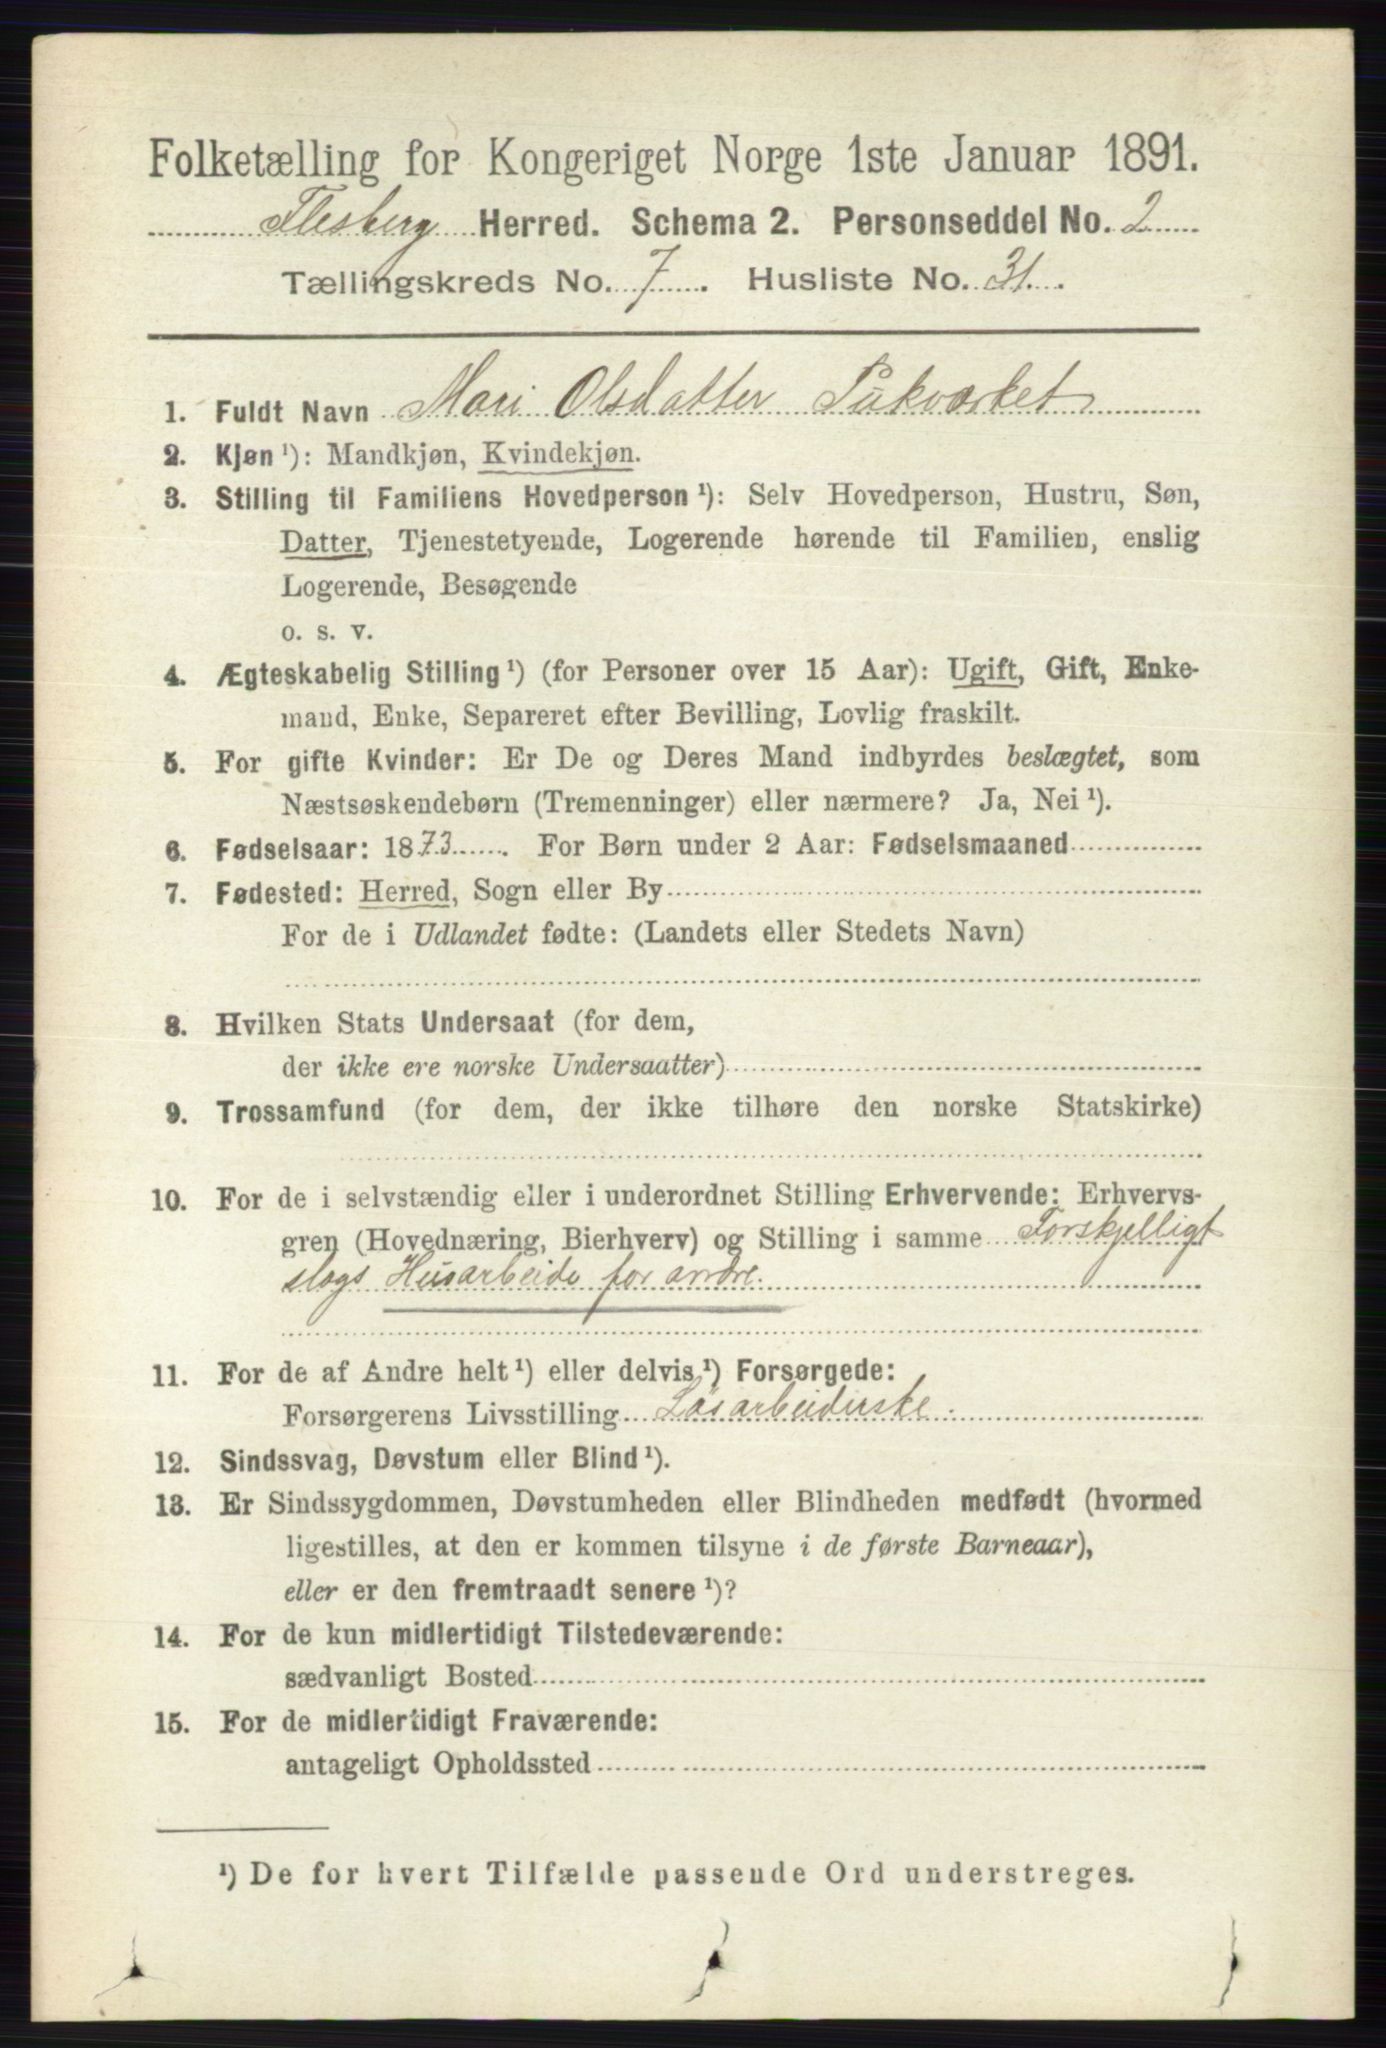 Folketælling for Kongeriget Norge 1ste Januar 1891.
Flesberg Herred. Schema 2. Personseddel No. 2
Tællingskreds No. 7. Husliste No. 31.
1. Fuldt Navn Mari Olsdatter Pukværket
2. Kjøn ¹): Mandkjøn, Kvindekjøn.
3. Stilling til Familiens Hovedperson ¹): Selv Hovedperson, Hustru, Søn,
Datter, Tjenestetyende, Logerende hørende til Familien, enslig
Logerende, Besøgende
o. s. v.
4. Ægteskabelig Stilling ¹) (for Personer over 15 Aar): Ugift, Gift, Enke-
mand, Enke, Separeret efter Bevilling, Lovlig fraskilt.
5. For gifte Kvinder: Er De og Deres Mand indbyrdes beslægtet, som
Næstsøskendebørn (Tremenninger) eller nærmere? Ja, Nei ¹).
6. Fødselsaar: 1873. For Børn under 2 Aar: Fødselsmaaned
7. Fødested: Herred, Sogn eller By
For de i Udlandet fødte: (Landets eller Stedets Navn)
8. Hvilken Stats Undersaat (for dem,
der ikke ere norske Undersaatter)
9. Trossamfund (for dem, der ikke tilhøre den norske Statskirke)
10. For de i selvstændig eller i underordnet Stilling Erhvervende: Erhvervs-
gren (Hovednæring, Bierhverv) og Stilling i samme Forskjelligt
slags Husarbeide for andre.
11. For de af Andre helt ¹) eller delvis ¹) Forsørgede:
Forsørgerens Livsstilling Løsarbeiderske.
12. Sindssvag, Døvstum eller Blind ¹).
13. Er Sindssygdommen, Døvstumheden eller Blindheden medfødt (hvormed
ligestilles, at den er kommen tilsyne i de første Barneaar),
eller er den fremtraadt senere ¹)?
14. For de kun midlertidigt Tilstedeværende:
sædvanligt Bosted
15. For de midlertidigt Fraværende:
antageligt Opholdssted
¹) De for hvert Tilfælde passende Ord understreges.